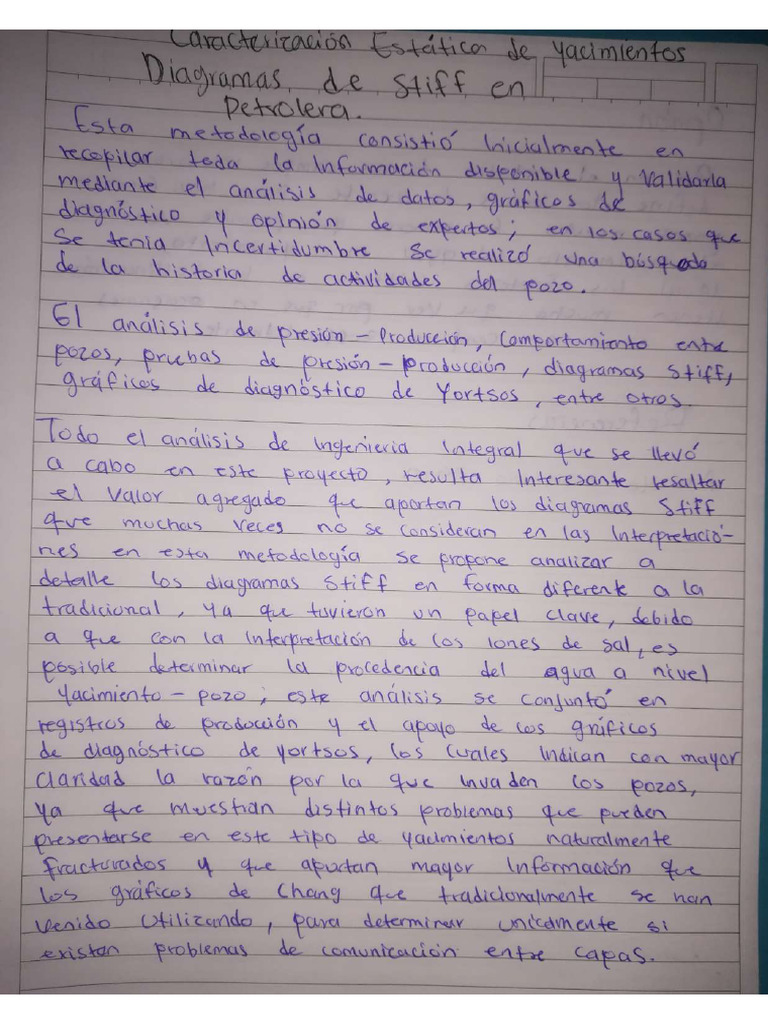 Caracterización Estática de Yacimientos
Diagramas de Stiff en
Petrolera.
Esta metodología consistió Inicialmente en
recopilar toda la Información disponible y Validarla
mediante el análisis de datos, gráficos de
diagnóstico y opinión de expertos; en los casos que
Se tenia Incertidumbre Se realizó una búsqueda
de la historia de actividades del pozo.
El análisis de presión - Producción, Comportamiento entre
pozos, pruebas de presión - producción, diagramas Stiff,
gráficos de diagnóstico de Yortsos, entre otros.
Todo el análisis de Ingenieria Integral que se llevó
a cabo en este proyecto, resulta Interesante resaltar
el Valor agregado que aportan los diagramas Stiff
que muchas veces no se consideran en las Interpretacio-
nes en esta metodología se propone analizar a
detalle los diagramas Stiff en forma diferente a la
tradicional, ya que tuvieron un papel clave, debido
a que con la Interpretación de los Iones de sal, es
posible determinar la procedencia del agua a nivel
Yacimiento - pozo; este análisis se conjuntó en
registros de producción y el apoyo de los gráficos
de diagnóstico de Yortsos, los Cuales Indican con mayor
Claridad la razón por la que Invaden los pozos,
ya que muestran distintos problemas que pueden
presentarse en este tipo de yacimientos naturalmente
fracturados y que aportan mayor Información que
los gráficos de Chang que tradicionalmente se han
venido Utilizando, para determinar unicamente si
existan problemas de comunicación entre capas.